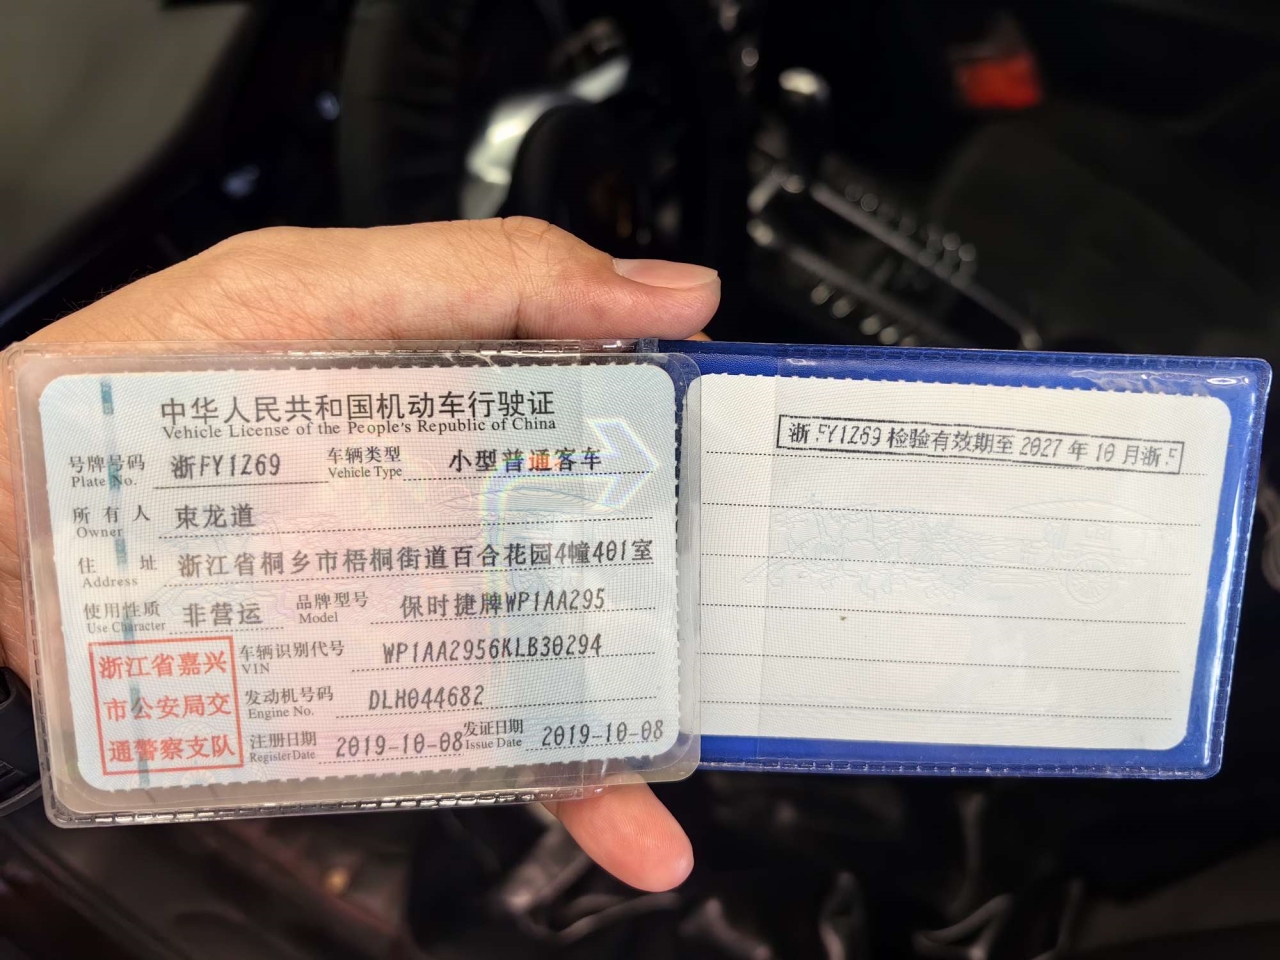 中华人民共和国机动车行驶证
Vehicle License of the People's Republic of China
号牌号码 浙FY1Z69 车辆类型 小型普通客车
Plate No. Vehicle Type
所有人 束龙道
Owner
住址 浙江省桐乡市梧桐街道百合花园4幢401室
Address
使用性质 非营运 品牌型号 保时捷牌WP1AA295
Use Character Model
浙江省嘉兴
市公安局交
通警察支队
车辆识别代号 WP1AA2956KLB30294
VIN
发动机号码 DLH044682
Engine No.
注册日期 2019-10-08 发证日期 2019-10-08
Register Date Issue Date
浙FY1Z69 检验有效期至 2027 年 10 月 浙F